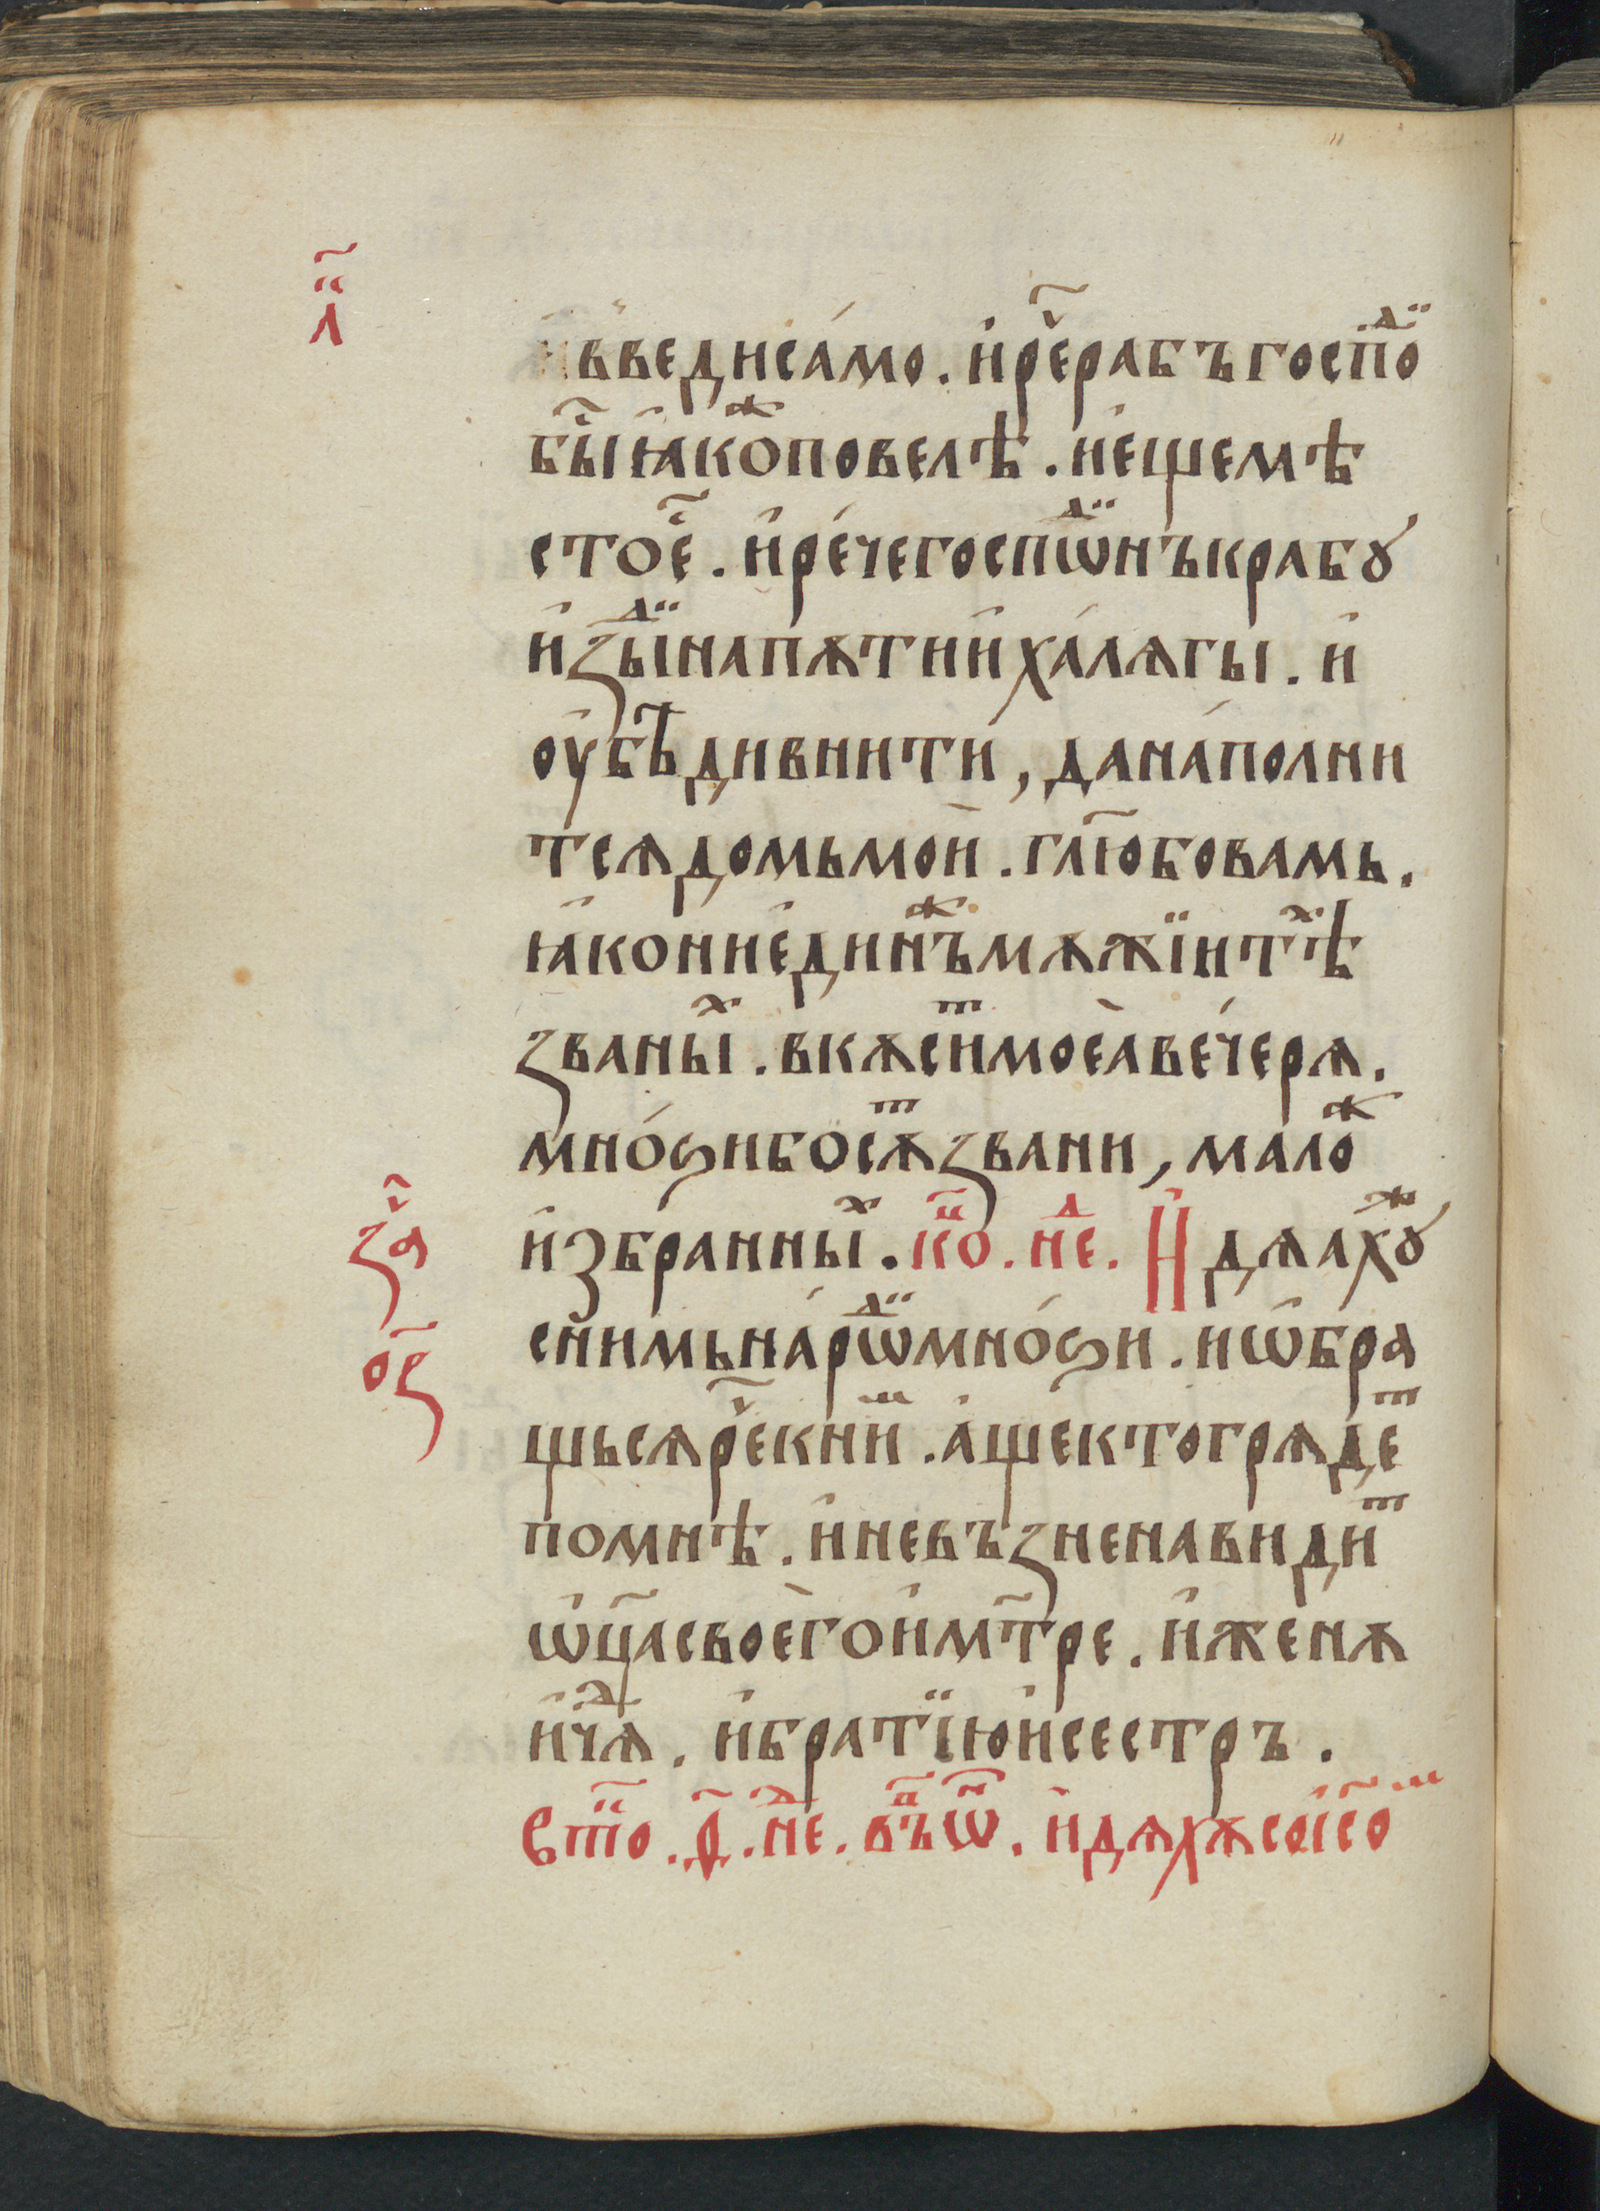 л҃і
и҆в̾ведиса́мо. и҆рече҃рабъгоспⷣо
бы҃і҆ꙗкоⷤповелѣ. и҆е҆щемѣ
стое҃. и҆ре́чегоспѡⷣнъкрабꙋ
и҆зы́ⷣинапѫтии҆ха́лѫгы. и҆
оу҆бѣ҃дивнити́, дана́полни
тсѧдомьмои҆. гл҃ю҆бовамь.
ꙗ҆кониединъⷤмѫжїитѣⷯ
званыⷯи. вкѫсиⷮмоеѧ̀ве́черѧ.
мно́ѕибосѫⷮзвани, малоⷤ
и҆збранныⷯи. ко҃ⷰ. неⷣ. И҆дѧаⷯꙋⷤ
снимьна́рѡⷣмно́ѕи. иѡ҆брѧ
щьсѧре҃книⷨ. а҆щектогрѧдеⷮ
помнѣ. и҆невъзненавидиⷮ
ѡ҆ц҃асвоего̀и҆мт҃ре. и҆женѫ
и҆чѧⷣ. и҆братїю҆и҆сестръ.
за҃ч
ос҃
Стⷯо. д҃. неⷣ. въⷫѿ. и҆дѧхѫсоі҆с҃оⷨ